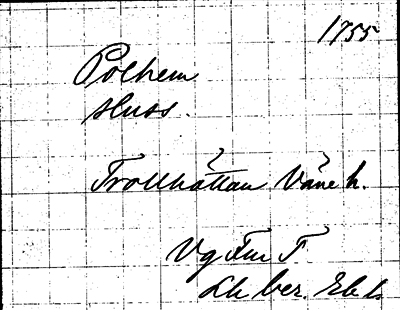 1755
Polhem
sluss.
Trollhättan Väne h.
Vg Fm T.
Lh ber.